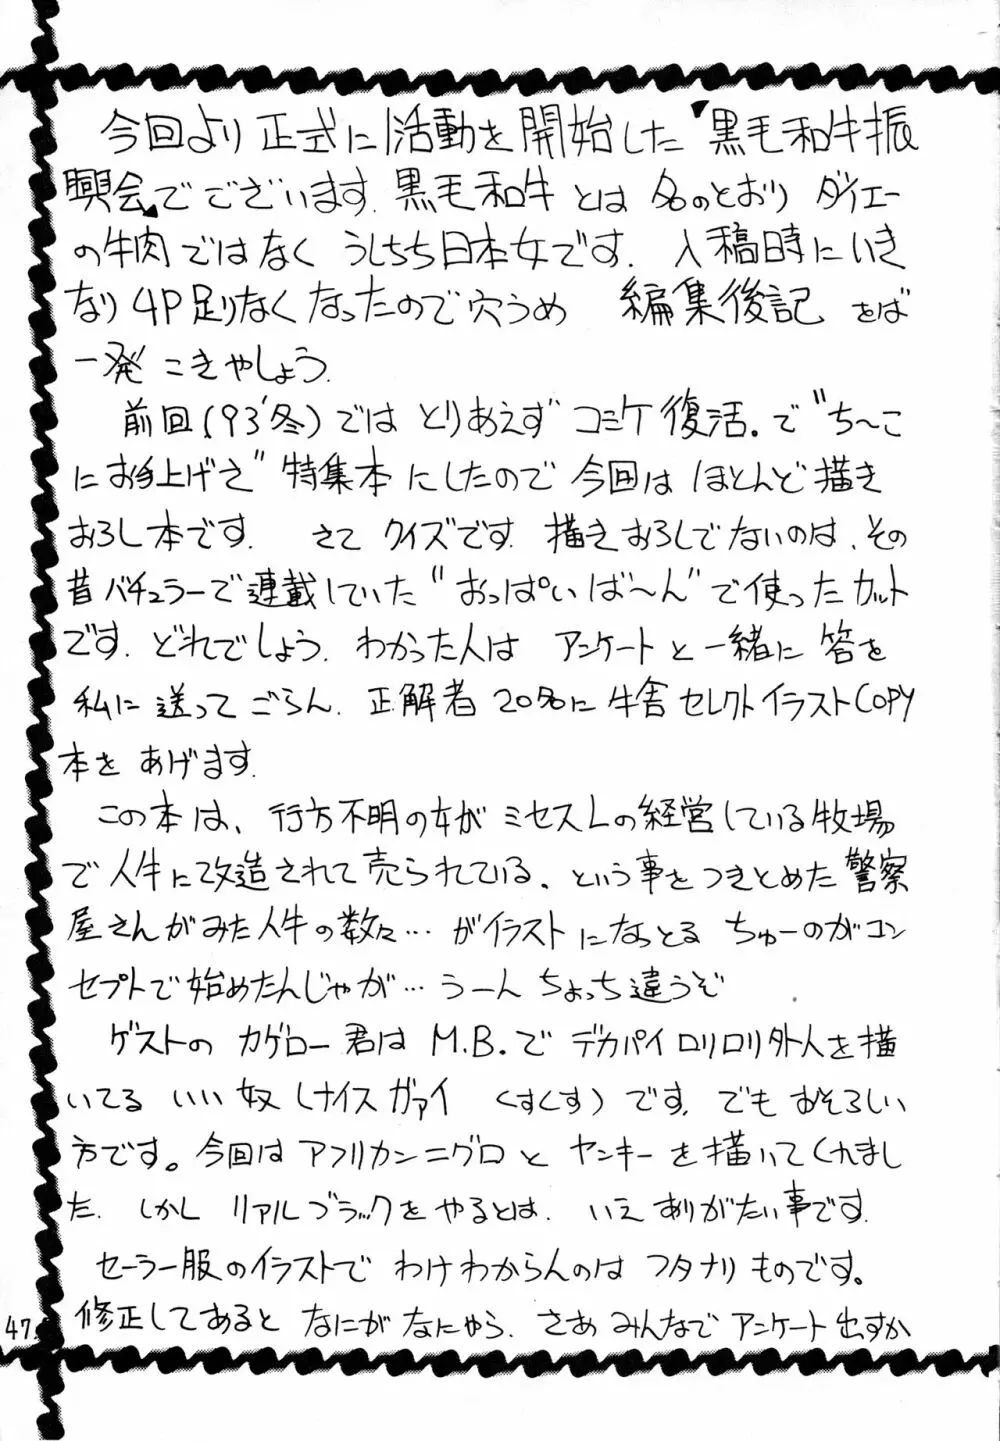 今回より正式に活動を開始した「黒毛和牛振
興会」でございます.黒毛和牛とは名のとおりダイエー
の牛肉ではなくうしちち日本女です.入稿時にいき
なり4P足りなくなったので穴うめ 編集後記をば
一発こきやしょう.
前回(93'冬)ではとりあえずコミケ復活.で"ち〜こ
にお手上げさ"特集本にしたので今回はほとんど描き
おろし本です. さてクイズです.描きおろしでないのは、その
昔バチュラーで連載していた"おっぱいば〜ん"で使ったカット
です.どれでしょう.わかった人はアンケートと一緒に答を
私に送ってごらん.正解者20%に牛舎セレクトイラストCOPY
本をあげます.
この本は、行方不明の女がミセスLの経営している牧場
で人牛に改造されて売られている、という事をつきとめた警察
屋さんがみた人牛の数々…がイラストになっとるちゅーのがコン
セプトで始めたんじゃが…うーんちょっち違うぞ
ゲストのカゲロー君はM.B.でデカパイロリロリ外人を描
いてるいい奴(ナイスガァイ くすくす)です.でもおそろしい
方です。今回はアフリカンニグロとヤンキーを描いてくれまし
た.しかしリアルブラックをやるとは.いえありがたい事です.
セーラー服のイラストでわけわからんのはフタナリものです。
修正してあるとなにがなにやら.さあみんなでアンケート出すか
47